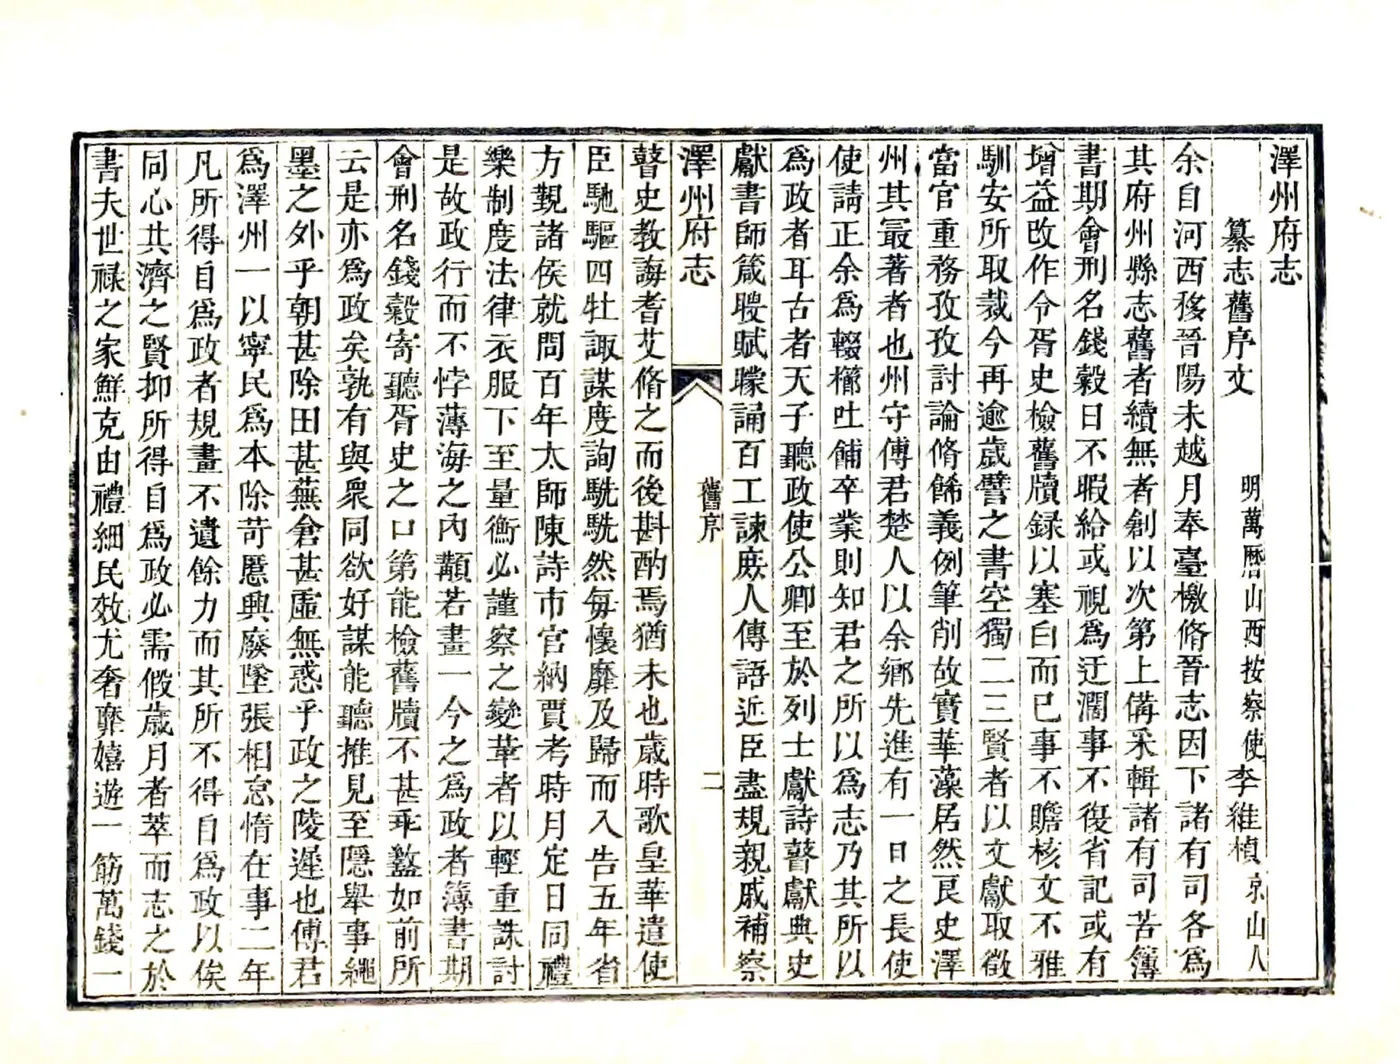 澤州府志
纂志舊序文
明萬曆山西按察使李維楨京山人
余自河西移晉陽未越月奉臺檄脩晉志因下諸有司各爲
其府州縣志舊者續無者創以次第上備采輯諸有司苦簿
書期會刑名錢穀日不暇給或視爲迂濶事不復省記或有
增益改作令胥史檢舊牘録以塞白而已事不贍核文不雅
馴安所取裁今再逾歲譬之書空獨二三賢者以文獻取徵
當官重務孜孜討論脩餙義例筆削故實華藻居然良史澤
州其最著者也州守傅君楚人以余鄉先進有一日之長使
使請正余爲輟櫛吐餔卒業則知君之所以爲志乃其所以
爲政者耳古者天子聽政使公卿至於列士獻詩瞽獻典史
獻書師箴瞍賦矇誦百工諫庻人傳語近臣盡規親戚補察
澤州府志
舊序
二
瞽史教誨耆艾脩之而後斟酌焉猶未也歲時歌皇華遣使
臣馳驅四牡諏謀度詢駪駪然每懷靡及歸而入告五年省
方覲諸侯就問百年太師陳詩市官納賈考時月定日同禮
樂制度法律衣服下至量衡必謹察之變革者以輕重誅討
是故政行而不悖薄海之內顜若畫一今之爲政者簿書期
會刑名錢穀寄聽胥史之口第能檢舊牘不甚乖盭如前所
云是亦爲政矣孰有與衆同欲好謀能聽推見至隱舉事繩
墨之外乎朝甚除田甚蕪倉甚虛無惑乎政之陵遲也傅君
爲澤州一以寧民爲本除苛慝興廢墜張相怠惰在事二年
凡所得自爲政者規畫不遺餘力而其所不得自爲政以俟
同心共濟之賢抑所得自爲政必需假歲月者萃而志之於
書夫世禄之家鮮克由禮細民效尤奢靡嬉遊一筯萬錢一